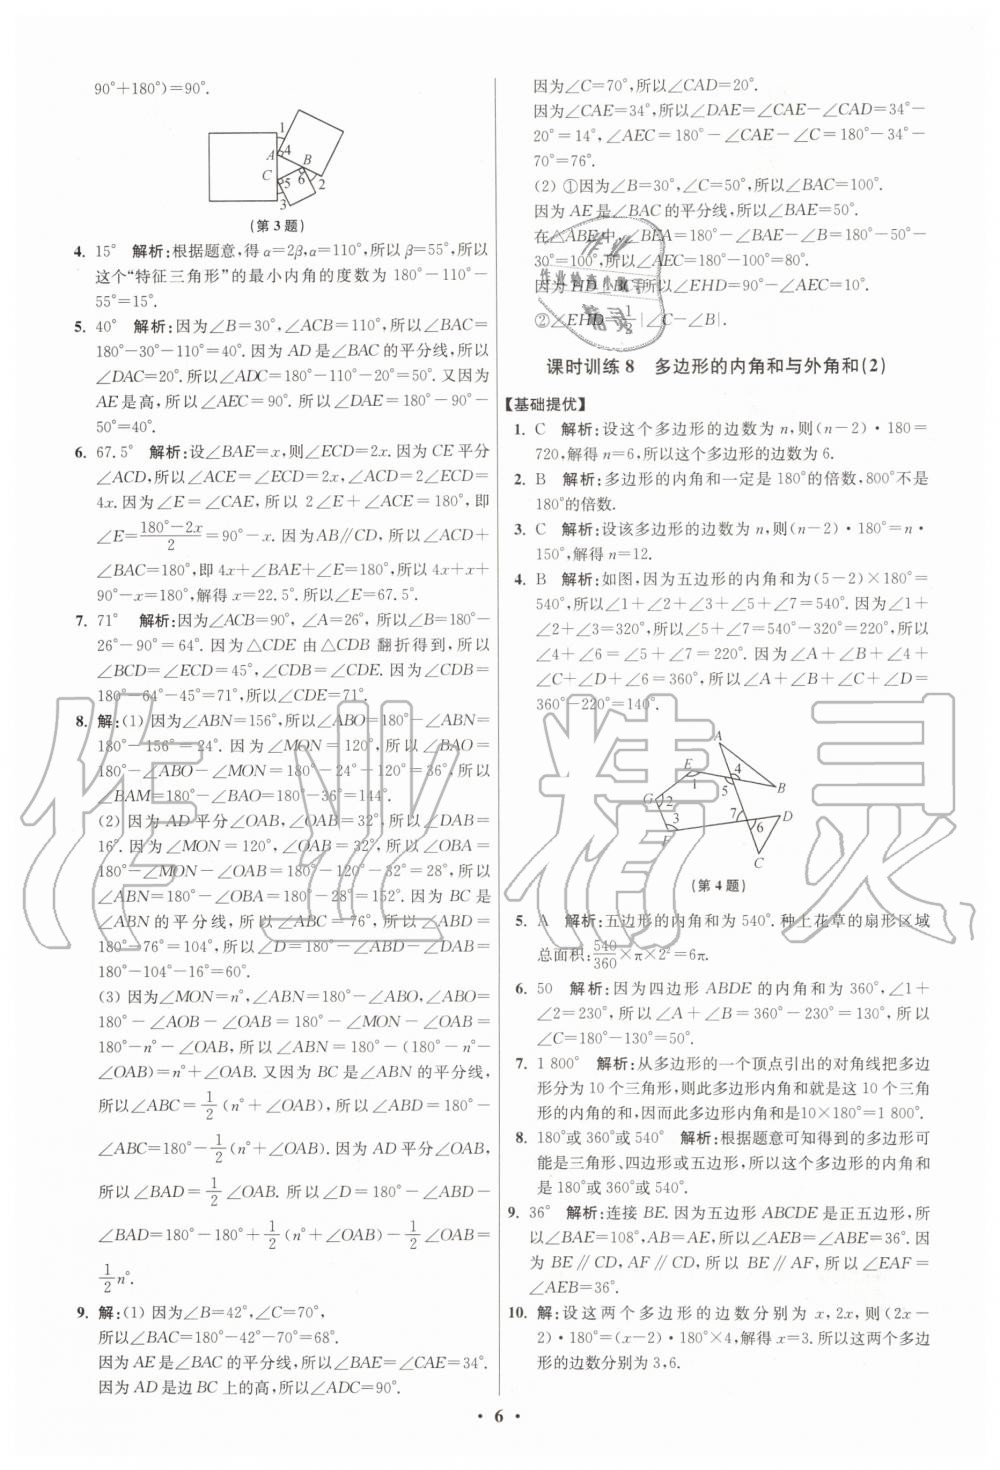 90°+180°)=90°.
1
A 4
B
C
5 6
2
3
(第 3 题)
4. 15° 解析:根据题意,得 α=2β,α=110°,所以 β=55°,所以
这个“特征三角形”的最小内角的度数为 180°-110°-
55°=15°.
5. 40° 解析:因为∠B=30°,∠ACB=110°,所以∠BAC=
180°-30°-110°=40°. 因为 AD 是∠BAC 的平分线,所以
∠DAC=20°. 所以∠ADC=180°-110°-20°=50°. 又因为
AE 是高,所以∠AEC=90°. 所以∠DAE=180°-90°-
50°=40°.
6. 67.5° 解析:设∠BAE=x,则∠ECD=2x. 因为 CE 平分
∠ACD,所以∠ACE=∠ECD=2x,∠ACD=2∠ECD=
4x. 因为∠E=∠CAE,所以 2∠E+∠ACE=180°,即
∠E=(180°-2x)/2=90°-x. 因为AB∥CD,所以∠ACD+
∠BAC=180°,即 4x+∠BAE+∠E=180°,所以 4x+x+
90°-x=180°,解得 x=22.5°. 所以∠E=67.5°.
7. 71° 解析:因为∠ACB=90°,∠A=26°, 所以∠B=180°-
26°-90°=64°. 因为△CDE 由△CDB 翻折得到,所以
∠BCD=∠ECD=45°,∠CDB=∠CDE. 因为∠CDB=
180°-64°-45°=71°,所以∠CDE=71°.
8. 解:(1) 因为∠ABN=156°,所以∠ABO=180°-∠ABN=
180°-156°=24°. 因为∠MON=120°,所以∠BAO=
180°-∠ABO-∠MON=180°-24°-120°=36°,所以
∠BAM=180°-∠BAO=180°-36°=144°.
(2) 因为 AD 平分∠OAB,∠OAB=32°,所以∠DAB=
16°. 因为∠MON=120°,∠OAB=32°,所以∠OBA=
180°-∠MON-∠OAB=180°-120°-32°=28°,所以
∠ABN=180°-∠OBA=180°-28°=152°. 因为 BC 是
∠ABN 的平分线,所以∠ABC=76°,所以∠ABD=
180°-76°=104°,所以∠D=180°-∠ABD-∠DAB=
180°-104°-16°=60°.
(3) 因为∠MON=n°,∠ABN=180°-∠ABO,∠ABO=
180°-∠AOB-∠OAB=180°-∠MON-∠OAB=
180°-n°-∠OAB,所以∠ABN=180°-(180°-n°-
∠OAB)=n°+∠OAB. 又因为 BC 是∠ABN 的平分线,
所以∠ABC=1/2(n°+∠OAB),所以∠ABD=180°-
∠ABC=180°-1/2(n°+∠OAB). 因为 AD 平分∠OAB,
所以∠BAD=1/2∠OAB. 所以∠D=180°-∠ABD-
∠BAD=180°-180°+1/2(n°+∠OAB)-1/2∠OAB=
1/2n°.
9. 解:(1) 因为∠B=42°,∠C=70°,
所以∠BAC=180°-42°-70°=68°.
因为 AE 是∠BAC 的平分线,所以∠BAE=∠CAE=34°.
因为 AD 是边 BC 上的高,所以∠ADC=90°.
因为∠C=70°,所以∠CAD=20°.
因为∠CAE=34°,所以∠DAE=∠CAE-∠CAD=34°-
20°=14°,∠AEC=180°-∠CAE-∠C=180°-34°-
70°=76°.
(2) ①因为∠B=30°,∠C=50°,所以∠BAC=100°.
因为 AE 是∠BAC 的平分线,所以∠BAE=50°.
在△ABE 中,∠BEA=180°-∠B-∠BAE=180°-50°-
30°=100°,所以∠AEC=180°-100°=80°.
因为 HD⊥BC,所以∠EHD=90°-∠AEC=10°.
②∠EHD=1/2|∠C-∠B|.
课时训练 8 多边形的内角和与外角和(2)
【基础提优】
1. C 解析:设这个多边形的边数为 n,则(n-2)·180=
720,解得 n=6,所以这个多边形的边数为 6.
2. B 解析:多边形的内角和一定是 180°的倍数,800°不是
180°的倍数.
3. C 解析:设该多边形的边数为 n,则(n-2)·180°=n·
150°,解得 n=12.
4. B 解析:如图,因为五边形的内角和为(5-2)×180°=
540°,所以∠1+∠2+∠3+∠5+∠7=540°. 因为∠1+
∠2+∠3=320°,所以∠5+∠7=540°-320°=220°,所以
∠4+∠6=∠5+∠7=220°. 因为∠A+∠B+∠4+
∠C+∠D+∠6=360°,所以∠A+∠B+∠C+∠D=
360°-220°=140°.
A
E
4
1
5
B
G
2
7
D
F
6
C
(第 4 题)
5. A 解析:五边形的内角和为 540°. 种上花草的扇形区域
总面积:540/360×π×2²=6π.
6. 50 解析:因为四边形 ABDE 的内角和为 360°,∠1+
∠2=230°,所以∠A+∠B=360°-230°=130°,所以
∠C=180°-130°=50°.
7. 1 800° 解析:从多边形的一个顶点引出的对角线把多边
形分为 10 个三角形,则此多边形内角和就是这 10 个三角
形的内角的和,因而此多边形内角和是10×180°=1 800°.
8. 180°或 360°或 540° 解析:根据题意可知得到的多边形可
能是三角形、四边形或五边形,所以这个多边形的内角和
是 180°或360°或540°.
9. 36° 解析:连接 BE. 因为五边形 ABCDE 是正五边形,所
以∠BAE=108°,AB=AE,所以∠AEB=∠ABE=36°. 因
为 BE∥CD,AF∥CD,所以 BE∥AF,所以∠EAF=
∠AEB=36°.
10. 解:设这两个多边形的边数分别为 x,2x,则(2x-
2)·180°=(x-2)·180°×4,解得 x=3. 所以这两个多边
形的边数分别为 3,6.
· 6 ·
作业精灵